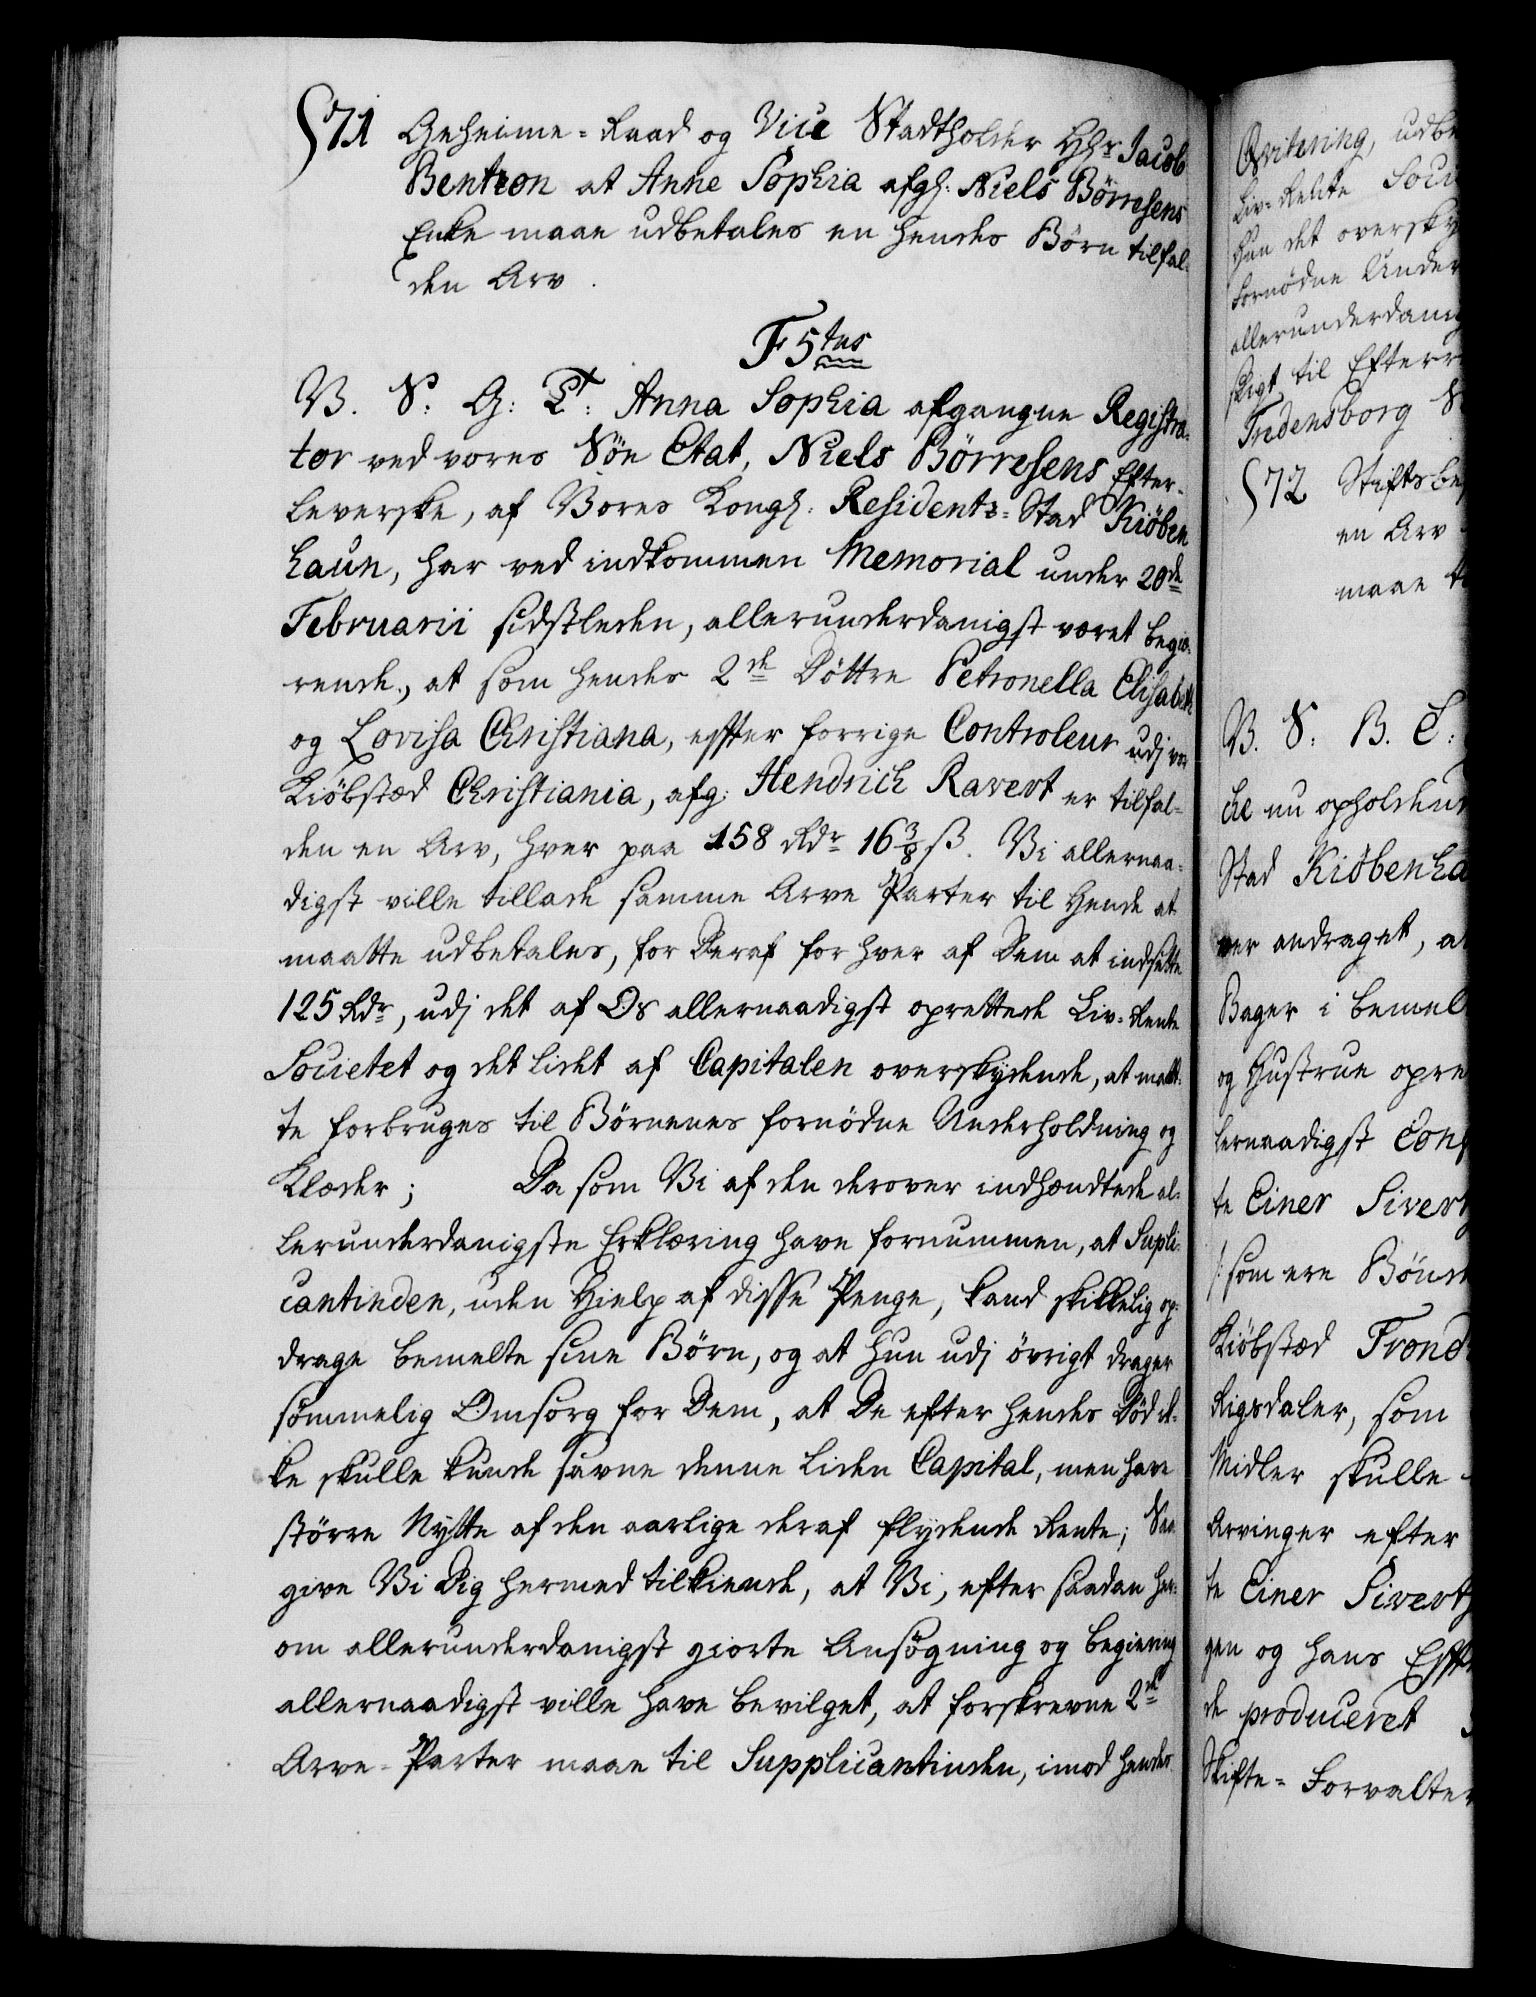 §71 Geheime-Raad og Vice Stadtholder Hr: Jacob
Bentzon at Anne Sophia afgl: Niels Börresens
Enke maae udbetales en hendes Börn tilfal-
den Arv.
F 5tus
V. S: G: T: Anna Sophia afgangne Registra-
tor ved vores Söe Etat, Niels Börresens Efter-
leverske, af Vores Kongl: Residentz-Stad Kiöben
haun, har ved indkommen Memorial under 20de
Februarii sidstleden, allerunderdanigst været begiæ-
rende, at som hendes 2de Döttre Petronella Elisabeth
og Lovisa Christiana, effter forrige Controleur udj vor
Kiöbstæd Christiania, afg: Hendrich Ravert er tilfal-
den en Arv, hver paa 158 Rdr 16 3/8 ß. Vi allernaa-
digst ville tillade samme Arve Parter til Hende at
maatte udbetales, for Deraf for hver af Dem at indsætte
125 Rdr, udj det af Os allernaadigst oprettede Liv-Rente
Societet og det lidet af Capitalen overskydende, at maat-
te forbruges til Börnenes fornödne Underholdning og
Klæder; Da som Vi af den derover indhændtede al-
lerunderdanigste Erklæring have fornummen, at Supli-
cantinden, uden Hielp af disse Penge, kand skikkelig op-
drage bemelte sine Börn, og at hun udj övrigt drager
sömmelig Omsorg for Dem, at De efter hendes Död ik-
ke skulle kunde savne denne liden Capital, men have
större Nytte af den aarlige deraf flydende Rente; Saa
give Vi Dig hermed tilkiende, at Vi, efter saadan her-
om allerunderdanigst giorte Ansögning og begiering
allernaadigst ville have bevilget, at forskrevne 2de
Arve-Parter maae til Supplicantinden, imod hendes
Qvitering, udbe
Liv-Rente Soci
hun det oversky
fornödne Under
allerunderdanig
skigt til Efterr
Fredensborg S
§72 Stiftsbe
en Arv
maae
V. S: B. C:
che nu opholdend
Stad Kiöbenha
ver andraget, a
Bager i bemel
og Hustrue opre
lernaadigst Conf
te Einer Sivert
/: som ere Bönd
Kiöbstæd Trond
Rigsdaler, som
Midler skulle
Arvinger efter
te Einer Sivert
gen og hans Effte
de produceret
Skifte-Forvalter